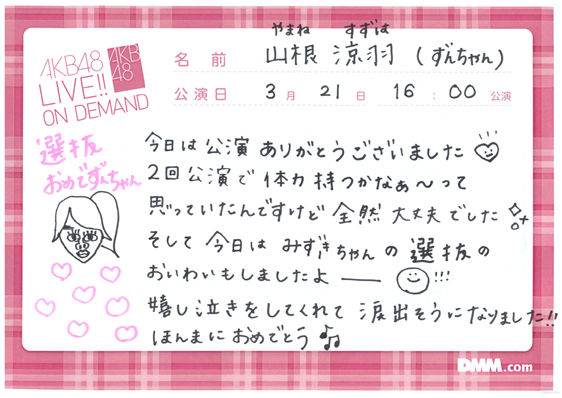 AKB48
LIVE!!
ON DEMAND
AKB
48
やまね すずは
名前 山根 涼羽 (ずんちゃん)
公演日 3月 21日 16:00 公演
選抜
おめでずんちゃん
今日は公演ありがとうございました
2回公演で体力持つかなぁ〜って
思っていたんですけど全然大丈夫でした
そして今日はみずきちゃんの選抜の
おいわいもしましたよー!!!
嬉し泣きをしてくれて涙出そうになりました!!
ほんまにおめでとう♫
DMM.com